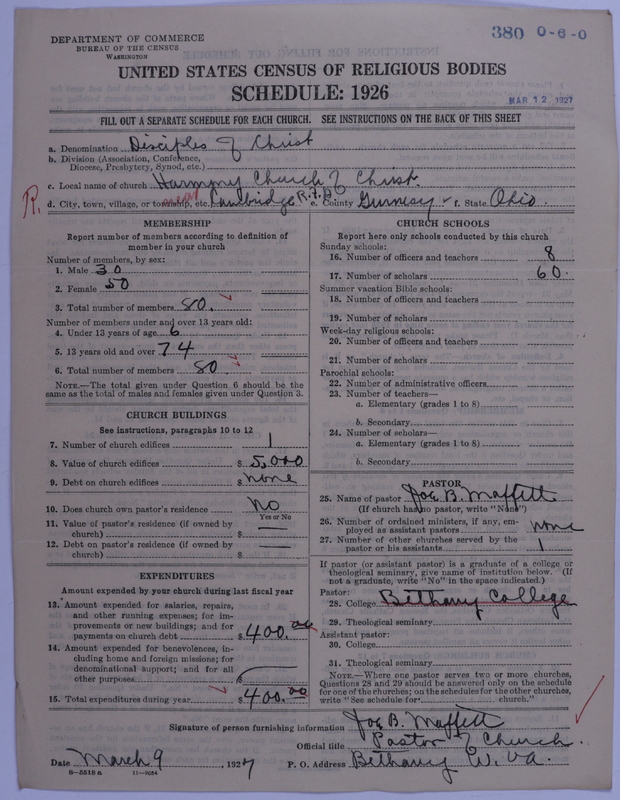 380 0-6-0
DEPARTMENT OF COMMERCE
BUREAU OF THE CENSUS
WASHINGTON
UNITED STATES CENSUS OF RELIGIOUS BODIES
SCHEDULE: 1926
MAR 12 1927
FILL OUT A SEPARATE SCHEDULE FOR EACH CHURCH. SEE INSTRUCTIONS ON THE BACK OF THIS SHEET
a. Denomination Disciples of Christ
b. Division (Association, Conference,
Diocese, Presbytery, Synod, etc.)
c. Local name of church Harmony Church of Christ.
R. d. City, town, village, or township, etc. near Cambridge R.F.D. e. County Gurnesy f. State Ohio.
MEMBERSHIP
Report number of members according to definition of
member in your church
Number of members, by sex:
1. Male 30
2. Female 50
3. Total number of members 80.
Number of members under and over 13 years old:
4. Under 13 years of age 6
5. 13 years old and over 74
6. Total number of members 80
NOTE.—The total given under Question 6 should be the
same as the total of males and females given under Question 3.
CHURCH BUILDINGS
See instructions, paragraphs 10 to 12
7. Number of church edifices 1
8. Value of church edifices $ 5,000
9. Debt on church edifices $ none
10. Does church own pastor's residence No
Yes or No
11. Value of pastor's residence (if owned by
church) $ —
12. Debt on pastor's residence (if owned by
church) $ —
EXPENDITURES
Amount expended by your church during last fiscal year
13. Amount expended for salaries, repairs,
and other running expenses; for im-
provements or new buildings; and for
payments on church debt $ 400.00
14. Amount expended for benevolences, in-
cluding home and foreign missions; for
denominational support; and for all
other purposes $
15. Total expenditures during year $ 400.00
CHURCH SCHOOLS
Report here only schools conducted by this church
Sunday schools:
16. Number of officers and teachers 8
17. Number of scholars 60.
Summer vacation Bible schools:
18. Number of officers and teachers
19. Number of scholars
Week-day religious schools:
20. Number of officers and teachers
21. Number of scholars
Parochial schools:
22. Number of administrative officers
23. Number of teachers—
a. Elementary (grades 1 to 8)
b. Secondary
24. Number of scholars—
a. Elementary (grades 1 to 8)
b. Secondary
PASTOR
25. Name of pastor Joe B. Maffett
(If church has no pastor, write "None")
26. Number of ordained ministers, if any, em-
ployed as assistant pastors none
27. Number of other churches served by the
pastor or his assistants 1
If pastor (or assistant pastor) is a graduate of a college or
theological seminary, give name of institution below. (If
not a graduate, write "No" in the space indicated.)
Pastor:
28. College Bethany College
29. Theological seminary
Assistant pastor:
30. College
31. Theological seminary
NOTE.—Where one pastor serves two or more churches,
Questions 28 and 29 should be answered only on the schedule
for one of the churches; on the schedules for the other churches,
write "See schedule for church."
Signature of person furnishing information Joe B. Maffett
Official title Pastor of Church.
Date March 9, 1927 P. O. Address Bethany W. Va.
8-5518 a 11-9084